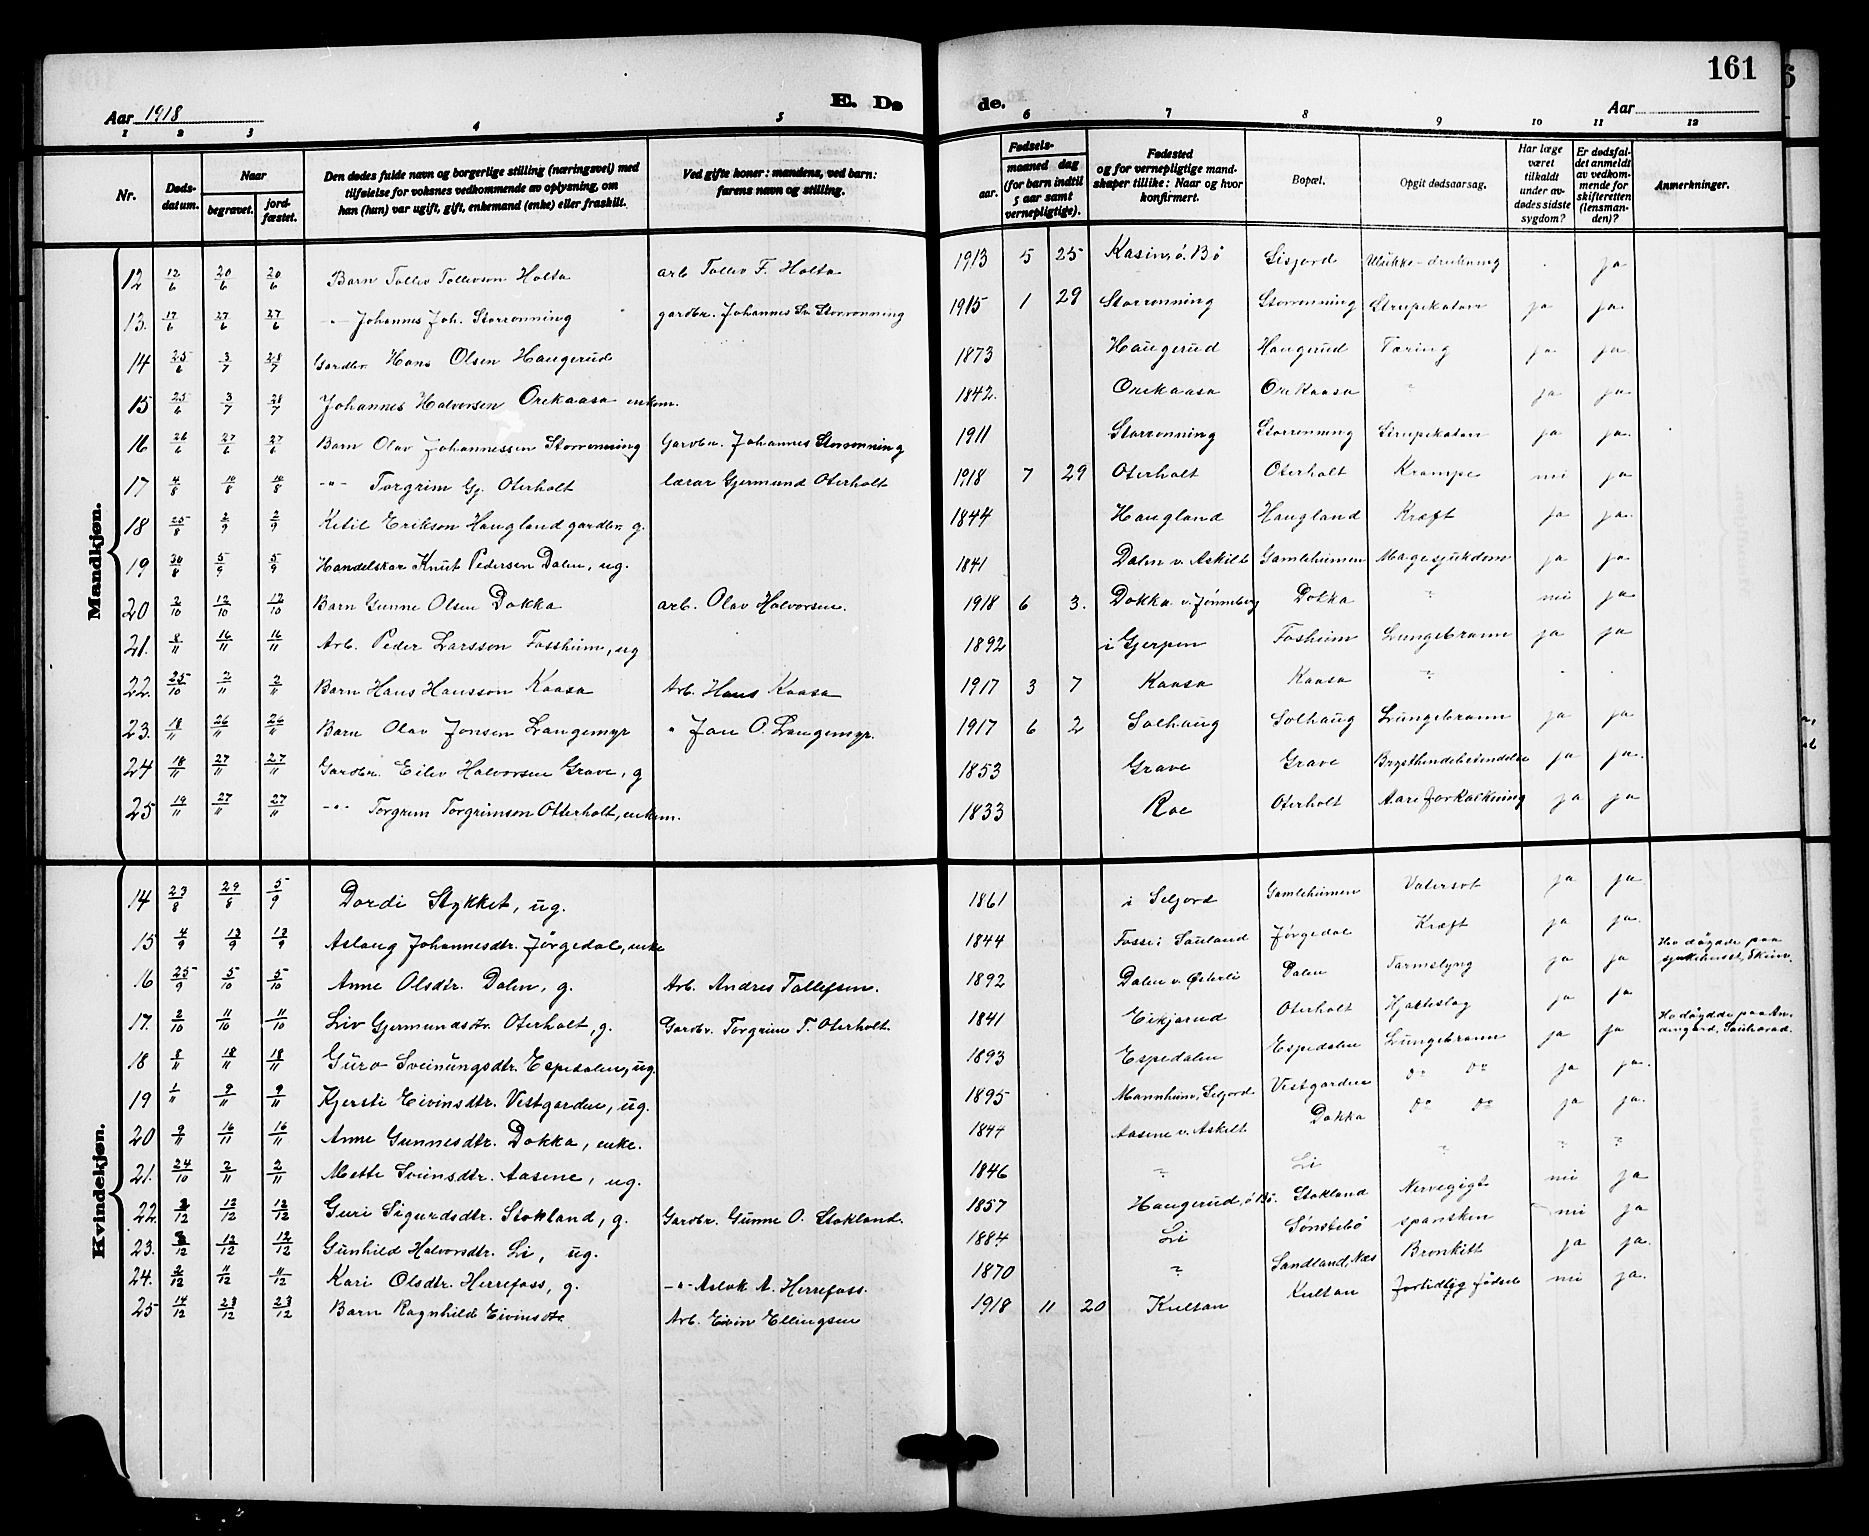 161
Aar 1918
E. Dø
de.
Aar
1 2 3 4 5 6 7 8 9 10 11 12
Nr. Døds-datum. Naar begravet. jord-fæstet. Den dødes fulde navn og borgerlige stilling (næringsvei) med tilføielse for voksnes vedkommende av oplysning, om han (hun) var ugift, gift, enkemand (enke) eller fraskilt. Ved gifte koner: mandens, ved barn: farens navn og stilling. Fødsels- aar. maaned dag (for barn indtil 5 aar samt vernepligtige). Fødested og for vernepligtige mandskaper tillike: Naar og hvor konfirmert. Bopæl. Opgit dødsaarsag. Har læge været tilkaldt under avdødes sidste sygdom? Er dødsfaldet anmeldt av vedkommende for skifteretten (lensmanden)? Anmerkninger.
Mandkjøn.
12 12/6 20/6 20/6 Barn Tollev Tollevson Holta arb Tollev F. Holta 1913 5 25 Kasin, ö. Bö Lisjord Ulukke-drukning . ja
13. 17/6 27/6 27/6 -"- Johannes Joh. Storrønning gardbr. Johannes Sv. Storrønning 1915 1 29 Storrønning Storrønning Strupekatarr ja ja.
14 25/6 3/7 28/7 Gardbr. Hans Olsen Haugerud 1873 Haugerud Haugerud Tæring ja ja
15 25/6 3/7 28/7 Johannes Halvorsen Orekaasa enkem. 1842. Orekaasa Orekaasa " ja ja
16 26/6 27/6 27/6 Barn Olav Johannessen Storrønning Gardbr. Johannes Storrønning 1911 Storrønning Storrønning Strupekatarr ja ja.
17 4/8 10/8 10/8 -"- Torgrim Gj. Oterholt lærar Gjermund Oterholt 1918 7 29 Oterholt Oterholt Krampe nei ja
18 25/8 2/9 2/9 Ketil Erikson Haugland gardbr. g. 1844 Haugland Haugland Kræft ja ja.
19 30/8 5/9 5/9 Handelskar Knut Pedersen Dalen, ug. 1841 Dalen v. Askilt Gamleheimen Magesjukdom ja ja
20 2/10 12/10 12/10 Barn Gunne Olsen Dokka arb. Olav Halvorsen. 1918 6 3. Dokka v. Jønneberg Dokka " nei ja
21. 8/11 16/11 16/11 Arb. Peder Larsson Fossheim, ug 1892 i Gjerpen Fosheim Lungebrann ja ja
22. 25/10 2/11 2/11 Barn Hans Hansson Kaasa Arb. Hans Kaasa 1917 3 7 Kaasa Kaasa " . .
23. 18/11 26/11 26/11 Barn Olav Jonsen Langemyr " Jon O. Langemyr. 1917 6 2 Solhaug Solhaug Lungebrann ja ja
24 18/11 27/11 27/11 Gardbr. Eilev Halvorsen Grave, g 1853 Grave Grave Brysthindebetendelse ja ja.
25 19/11 27/11 27/11 -"- Torgrim Torgrimson Otterholt, enkem. 1833 Roe Oterholt Aareforkalkning ja ja
Kvindekjøn.
14 23/8 29/8 5/9 Dordi Stykket, ug. 1861 i Seljord Gamleheimen Vatersot ja ja
15 4/9 13/9 13/9 Aslaug Johannesdtr. Jørgedal, enke 1844 Fosse i Sauland Jørgedal Kræft ja ja.
16 25/9 5/10 5/10 Anne Olsdtr. Dalen, g. Arb. Andres Tollefsen. 1892 Dalen v. Østerli Dalen Tarmslyng ja ja Ho døydde paa sjukehuset, Skien.
17. 2/10 11/10 11/10 Liv Gjermundsdtr. Oterholt, g. Gardbr. Torgrim T. Oterholt. 1841 Eikjarud Oterholt Hjarteslag ja ja
18 8/11 18/11 18/11 Guro Sveinungsdtr. Espedalen, ug. 1893 Espedalen Espedalen Lungebrann ja ja Ho døydde paa Andengard, Sauherad.
19 1/11 9/11 9/11 Kjersti Eivinsdtr. Vestgarden, ug. 1895 Mannheim, Seljord Vestgarden do do ja ja.
20 9/11 16/11 16/11 Anne Gunnesdtr. Dokka, enke. 1844 Aasene v. Askilt Dokka do do ja ja.
21. 24/10 2/11 2/11 Mette Sveinsdtr. Aasene, ug. 1846 " Li " " "
22. 2/12 12/12 12/12 Guri Sigurdsdtr. Stokland, g. Gardbr. Gunne O. Stokland. 1857 Haugerud, ö Bö. Stokland Nervegigt nei ja
23. 12/12 12/12 Gunhild Halvorsdtr. Li, ug. 1884 Li Sønstebö spansken nei ja
24. 2/12 11/12 11/12 Kari Olsdtr. Herrefoss, g. -"- Aslak A. Herrefoss. 1870 " Sandland, Næs Bronkitt ja ja.
25 14/12 23/12 23/12 Barn Ragnhild Eivinsdtr Arb. Eivin Ellingsen 1918 11 20 Kultan Kultan fortidlig fødsel nei ja.